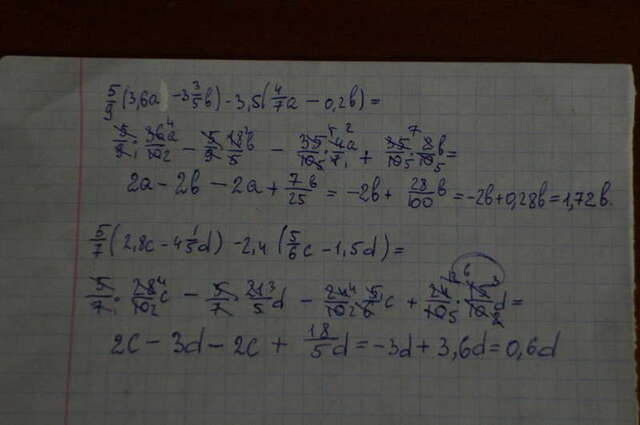 5/9(3,6a - 3 3/5 b) - 3,5(4/7 a - 0,2b) =
5/9 · 36a/10 - 5/9 · 18b/5 - 35/10 · 4a/7 + 35/10 · 8b/10 =
2a - 2b - 2a + 7b/25 = -2b + 28/100 b = -2b + 0,28b = 1,72b.
5/7(2,8c - 4 1/5 d) - 2,4(5/6 c - 1,5d) =
5/7 · 28/10 c - 5/7 · 21/5 d - 24/10 · 5/6 c + 24/10 · 15/10 d =
2c - 3d - 2c + 18/5 d = -3d + 3,6d = 0,6d